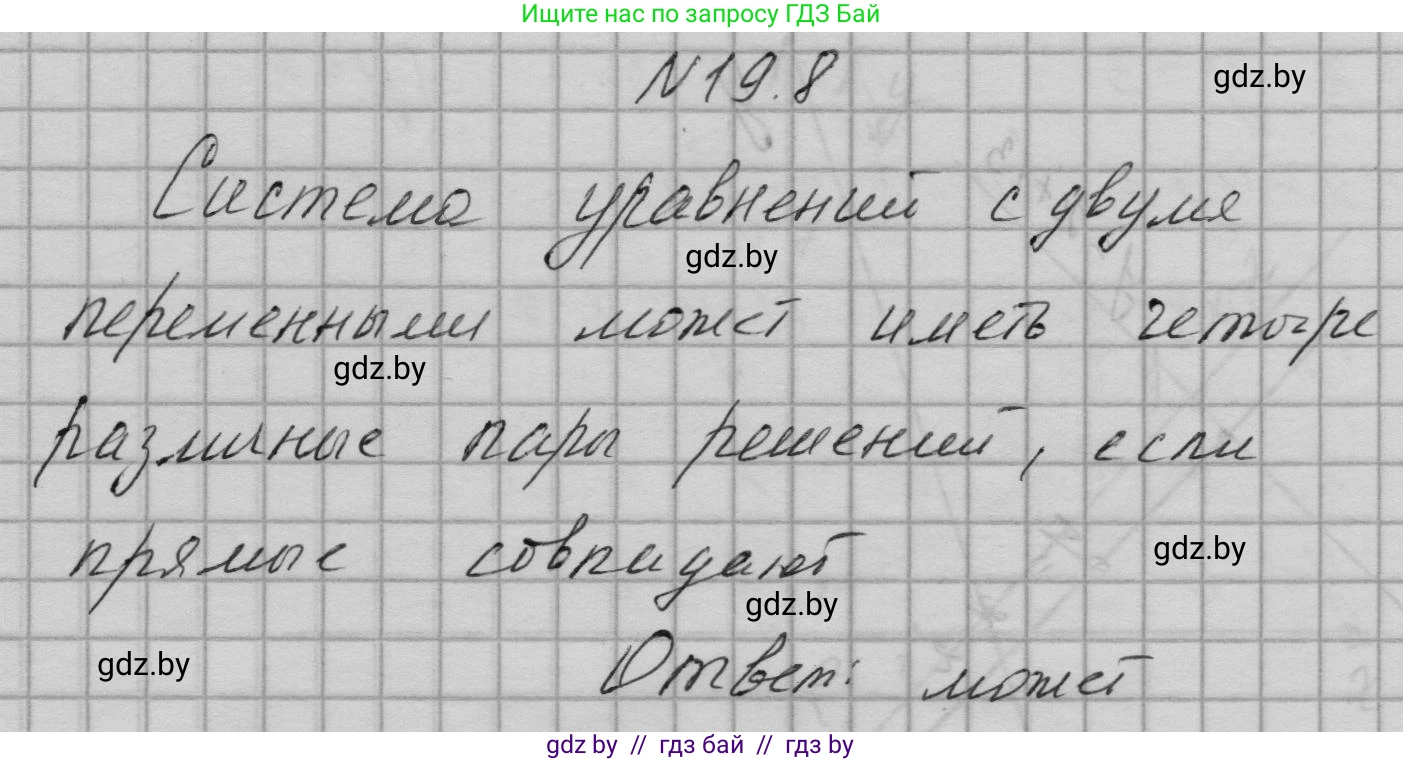 Ищите нас по запросу ГДЗ Бай
N19.8
gdz.by
Система уравнений с двумя
gdz.by
переменными может иметь четыре
gdz.by
различные пары решений, если
прямые совпадают
gdz.by
gdz.by
Ответ: может
gdz.by
gdz by // гдз бай // гдз by